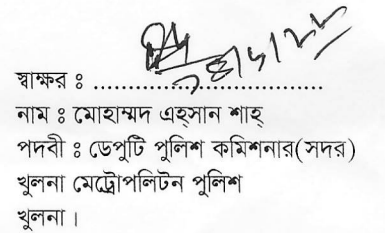 স্বাক্ষর ঃ ..................................
নাম ঃ মোহাম্মদ এহ্সান শাহ্
পদবী ঃ ডেপুটি পুলিশ কমিশনার(সদর)
খুলনা মেট্রোপলিটন পুলিশ
খুলনা।